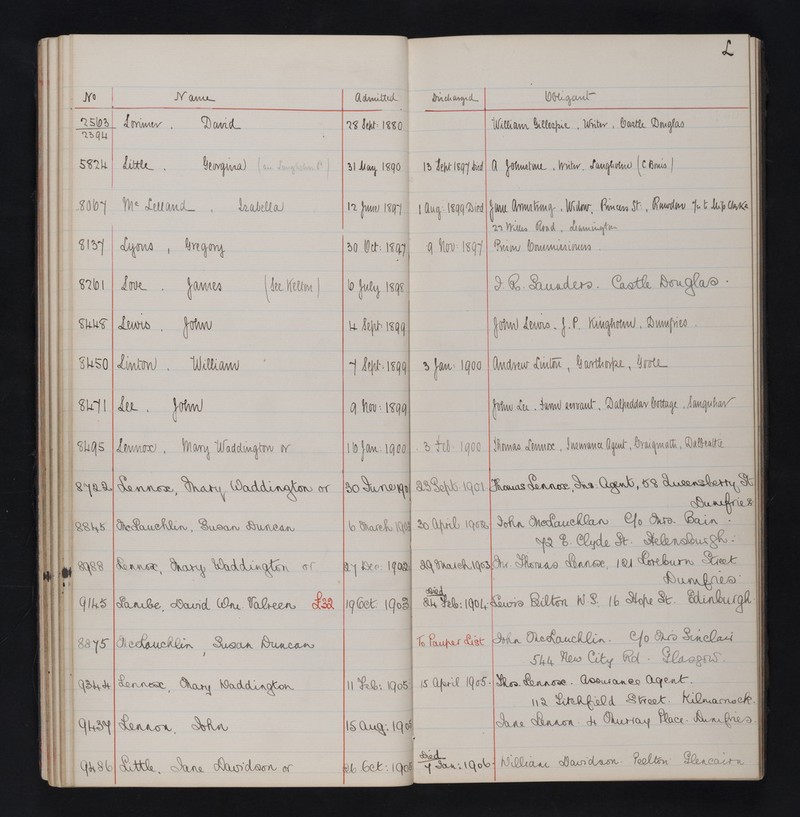 L
No Name Admitted Discharged Obligant
2563 Lorimer . David 28 Sept: 1880 William Gillespie . Writer . Castle Douglas
2394
5824 Little . Georgina 31 May 1890 13 Sept 1897 Died A Johnstone . Writer . Langholm
8067 Mc Lelland . Isabella 12 June 1897 1 Aug: 1899 Died Jane Armstrong . Widow . Princess St: , Rawdon
27 Willes Road . Leamington
8137 Lyons , Gregory 30 Oct: 1897 9 Nov: 1897 Prison Commissioners
8261 Love . James (See Kelton) 6 July 1898 J. R. Saunders . Castle Douglas .
8448 Lewis . John 14 Sept: 1899 John Lewis . J.P. Kingholm . Dumfries
8450 Linton . William 7 Sept: 1899 3 Jan: 1900 Andrew Linton , Garthorpe , Goole
8471 Lee . John 9 Nov: 1899 John Lee . Farm servant . Dalpeddar Cottage . Sanquhar
8495 Lennox . Mary Waddington or 16 Jan: 1900 3 Feb: 1900 Thomas Lennox . Insurance Agent , Craignair , Dalbeattie
8722 Lennox, Mary Waddington or 30 June 23 Sept: 1901 Thomas Lennox, Ins: Agent, 58 Queensberry St
Dumfries
8845 McLauchlin , Susan Duncan 6 March 30 April 1902 John McLauchlan C/o Mrs. Bain .
72 E. Clyde St. Helensburgh .
8988 Lennox, Mary Waddington or 27 Dec: 1902 29 March 1903 Mr Thomas Lennox, 121 Loreburn Street
Dumfries
9145 Lambe, David Wm Valreen £32 19 Oct: 1903 Died 24 Feb: 1904 Lewis Bilton W.S. 16 Hope St. Edinburgh
8875 McLauchlin , Susan Duncan To Pauper List John McLauchlin . C/o Mrs Sinclair
544 New City Rd . Glasgow .
9344 Lennox, Mary Waddington 11 Feb: 1905 15 April 1905 . Thos. Lennox . Assurance Agent .
112 Litchfield Street . Kilmarnock .
9437 Lennon . John 15 Aug: Jane Lennon . 4 Murray Place . Dumfries
9486 Little . Jane Davidson or 26 Oct: Died 7 Jan: 1906 . William Davidson . Peelton Glencairn